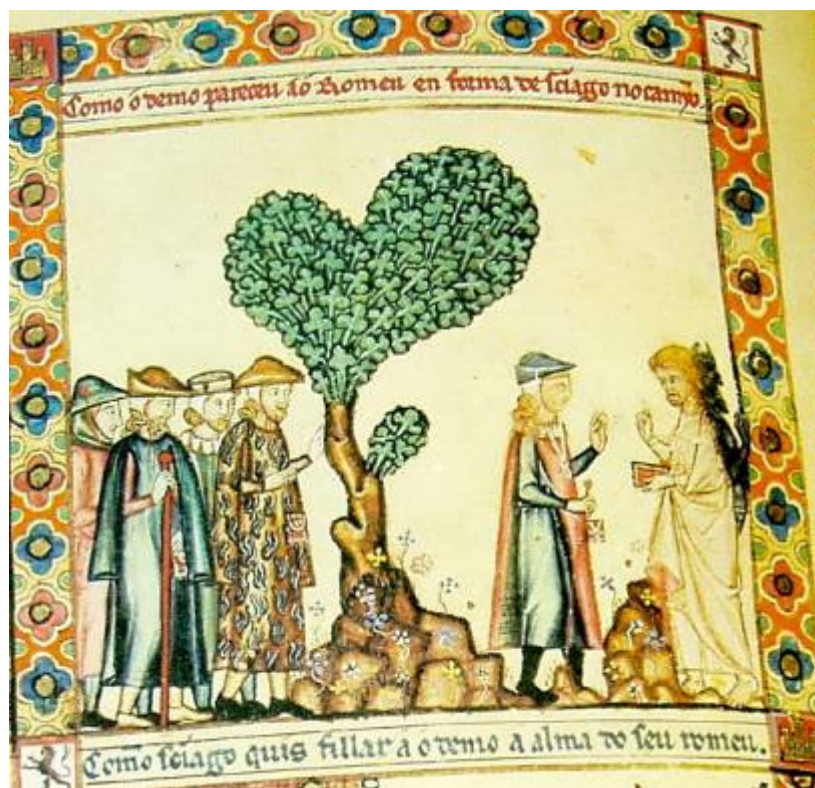 Como o demo pareceu ao Romeu en forma de sciago no camỹo.
Como sciago quis fillar a o demo a alma do seu romeu.